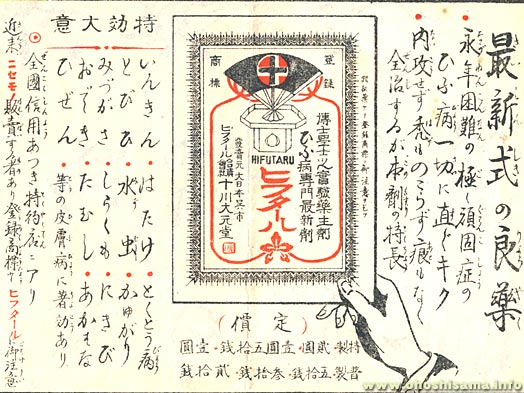 最新式の良藥
永年困難の極し頑固症の
ひふ病一切に直ぐキク
内攻せず禿ものこらず痕もなく
全治するが本劑の特長
登録
商標
HIFUTARU
博士學士之實驗藥主劑
ひふ病專門最新劑
ヒフタール
發賣元 大日本呉市
ヒフタール會社 十川大元堂
特効大意
いんきん・はたけ・とくとう病
とびひ・水虫・かゆがり
みづがさ・しらくも・にきび
おでき・たむし・あかぎな
ひぜん・等の皮膚病に著効あり
全國信用あつき特約店ニアリ
近来ニセモノ販賣する者あり登録商標ヒフタールに御注意
(定價)
特製・貳圓・壹圓・五拾錢・壹圓
普製・五拾錢・参拾錢・貳拾錢
www.otoshisama.info